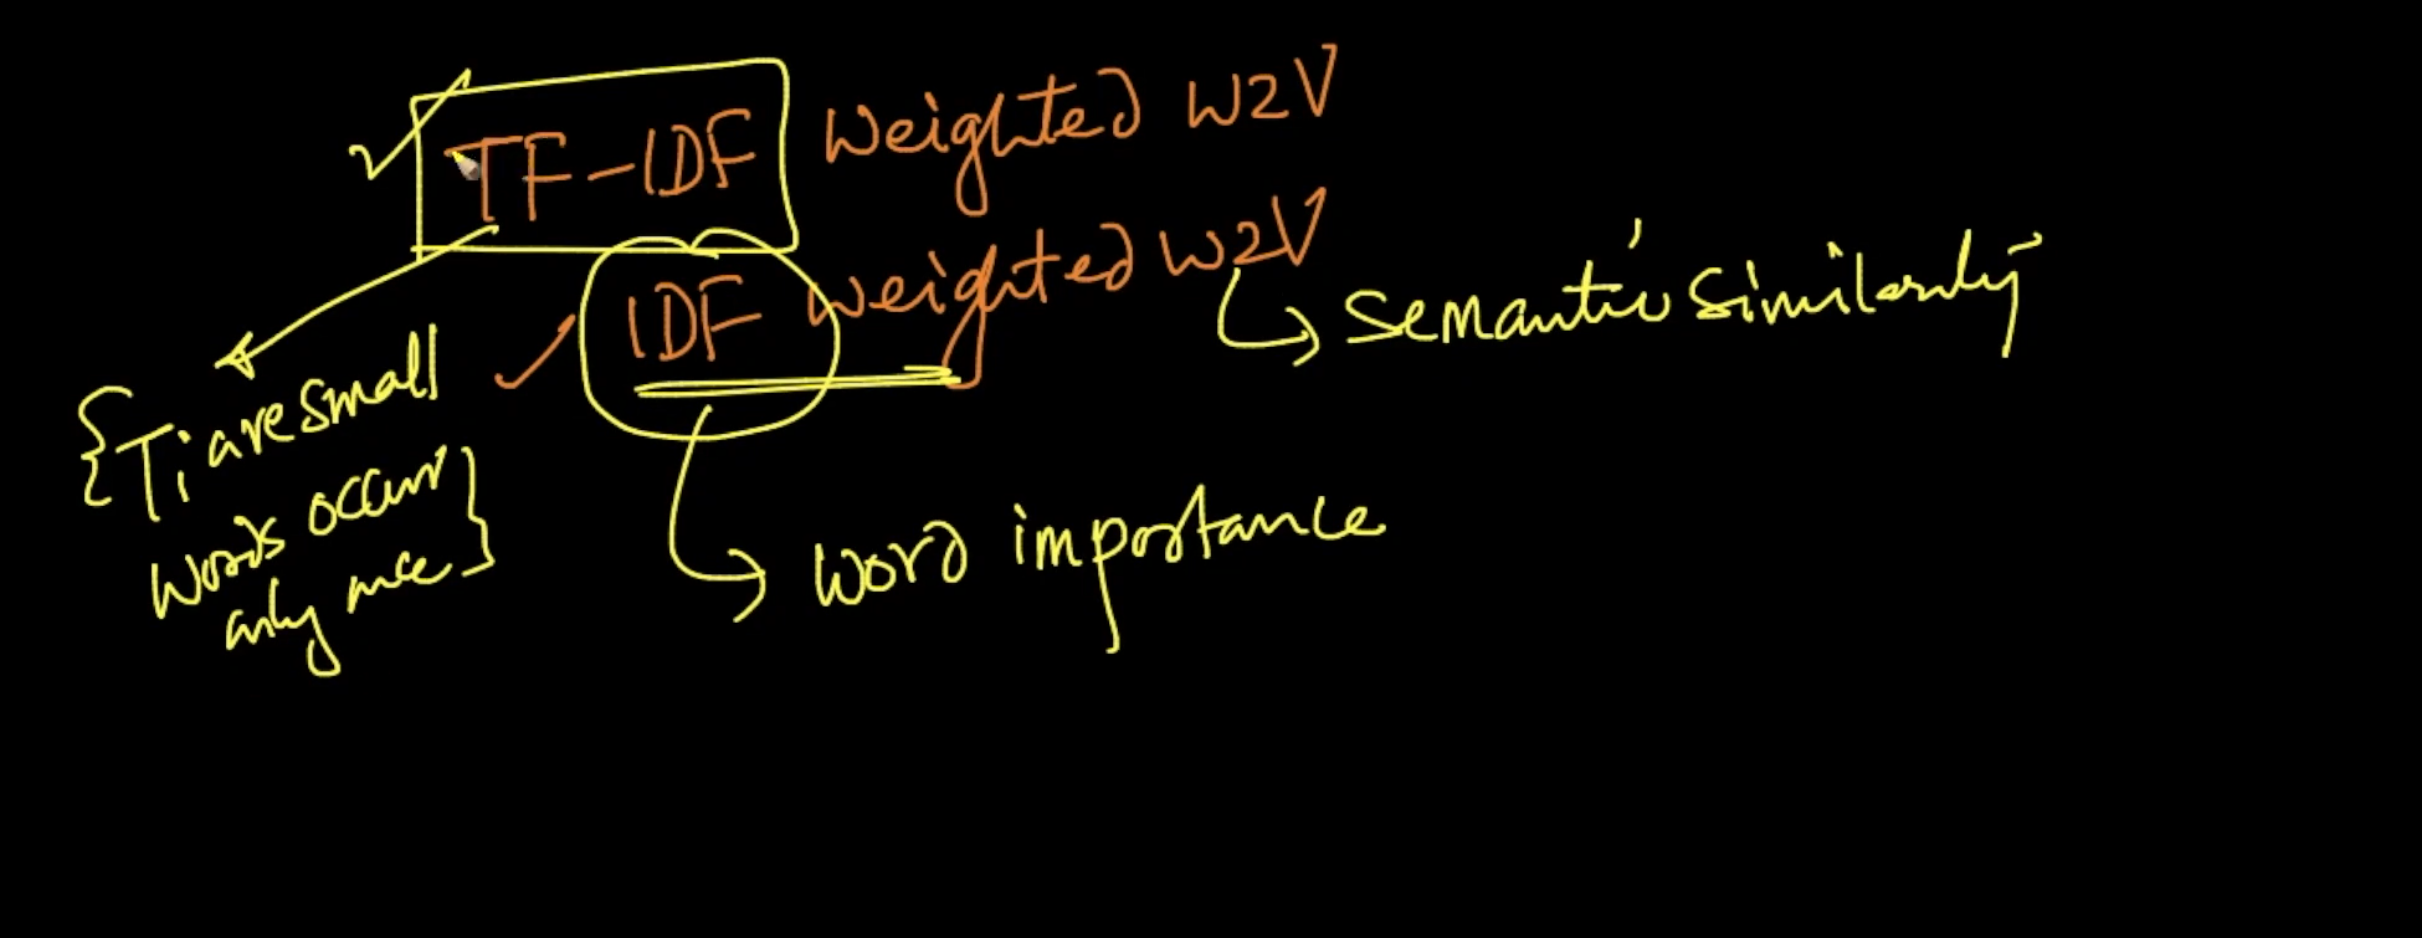 TF-IDF weighted W2V
IDF weighted W2V
semantic similarity
{Ti are small
words occurr
only once}
word importance